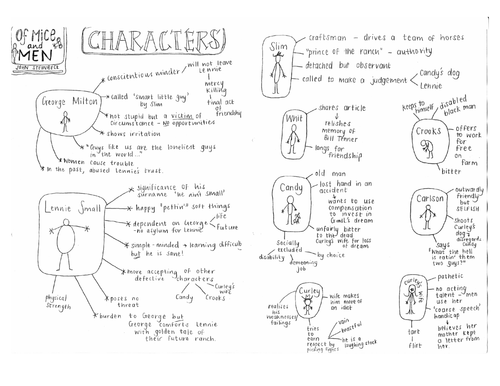 Of Mice
and
MEN
JOHN STEINBECK
CHARACTERS
George Milton
conscientious minder
will not leave
Lennie
mercy
killing
final act
of
friendship
called "smart little guy"
by Slim
not stupid but a victim of
circumstance - no opportunities
shows irritation
"Guys like us are the loneliest guys
in the world..."
Women cause trouble
In the past, abused Lennie's trust.
Lennie Small
significance of his
surname "he ain't small"
happy "pettin'" soft things
dependent on George
no asylum for Lennie
life
future
simple-minded + learning difficult
but he is sane!
more accepting of other
defective characters
Candy
Crooks
Curley's
wife
physical
strength
poses no
threat
burden to George but
George comforts Lennie
with golden tale of
their future ranch.
Slim
craftsman - drives a team of horses
"prince of the ranch" - authority
detached but observant
called to make a judgement
Candy's dog
Lennie
Whit
shares article
relishes
memory of
Bill Tenner
longs for
friendship
Crooks
keeps to
himself
disabled
black man
offers to
work for
free
on
farm
bitter
Candy
old man
lost hand in an
accident
wants to use
compensation
to invest in
dream
unfairly bitter
to the dead
Curley's wife for loss
of dream
socially
excluded
by choice
disability
demeaning
job
Carlson
outwardly
friendly
but
SELFISH
shoots
Curley's
dog
says
"What the hell
is eatin' them
two guys?"
Curley
realises
his
weaknesses/
failings
wife makes him
more of
an
tries
to
earn
respect by
picking fights
vain
boastful
he is a
laughing stock
Curley's wife
pathetic
no acting
talent - men
use her
'coarse speech'
handicap
believes her
mother kept
a letter from
her.
tart
flirt